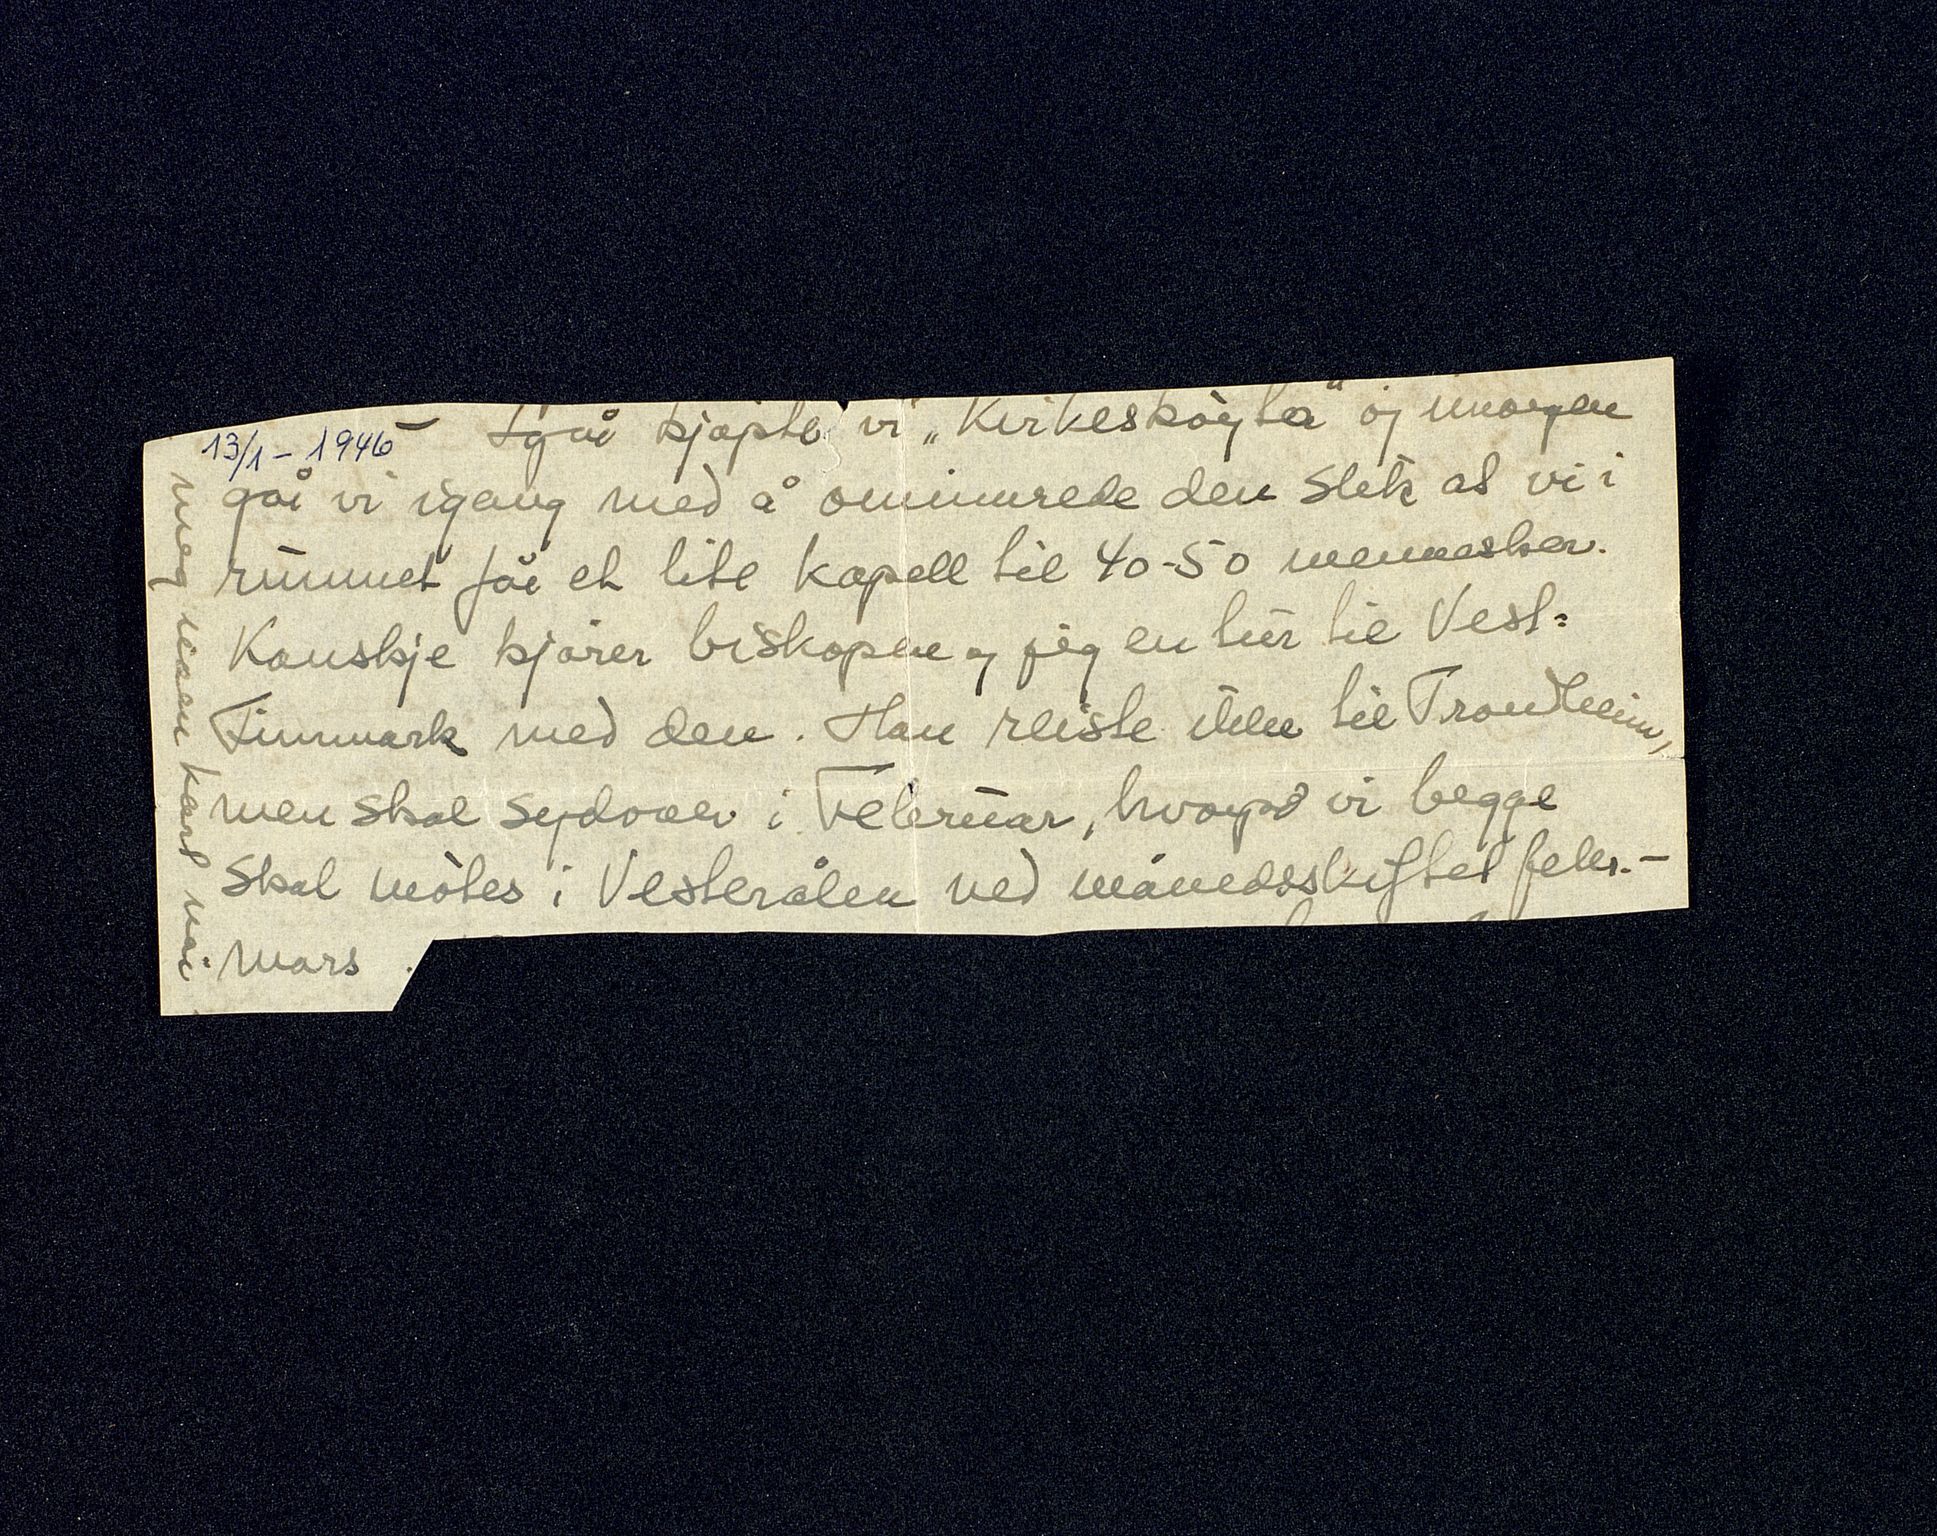 13/1 – 1946 – Igår kjøpte vi „Kirkeskøyta" og imorgen
går vi igang med å ominnrede den slik at vi i
rummet får et lite kapell til 40-50 mennesker.
Kanskje kjører biskopen og jeg en tur til Vest-
Finnmark med den. Han reiste ikke til Trondheim,
men skal sydover i Februar, hvorpå vi begge
skal møtes i Vesterålen ved månedsskiftet febr.–
mars.
meg